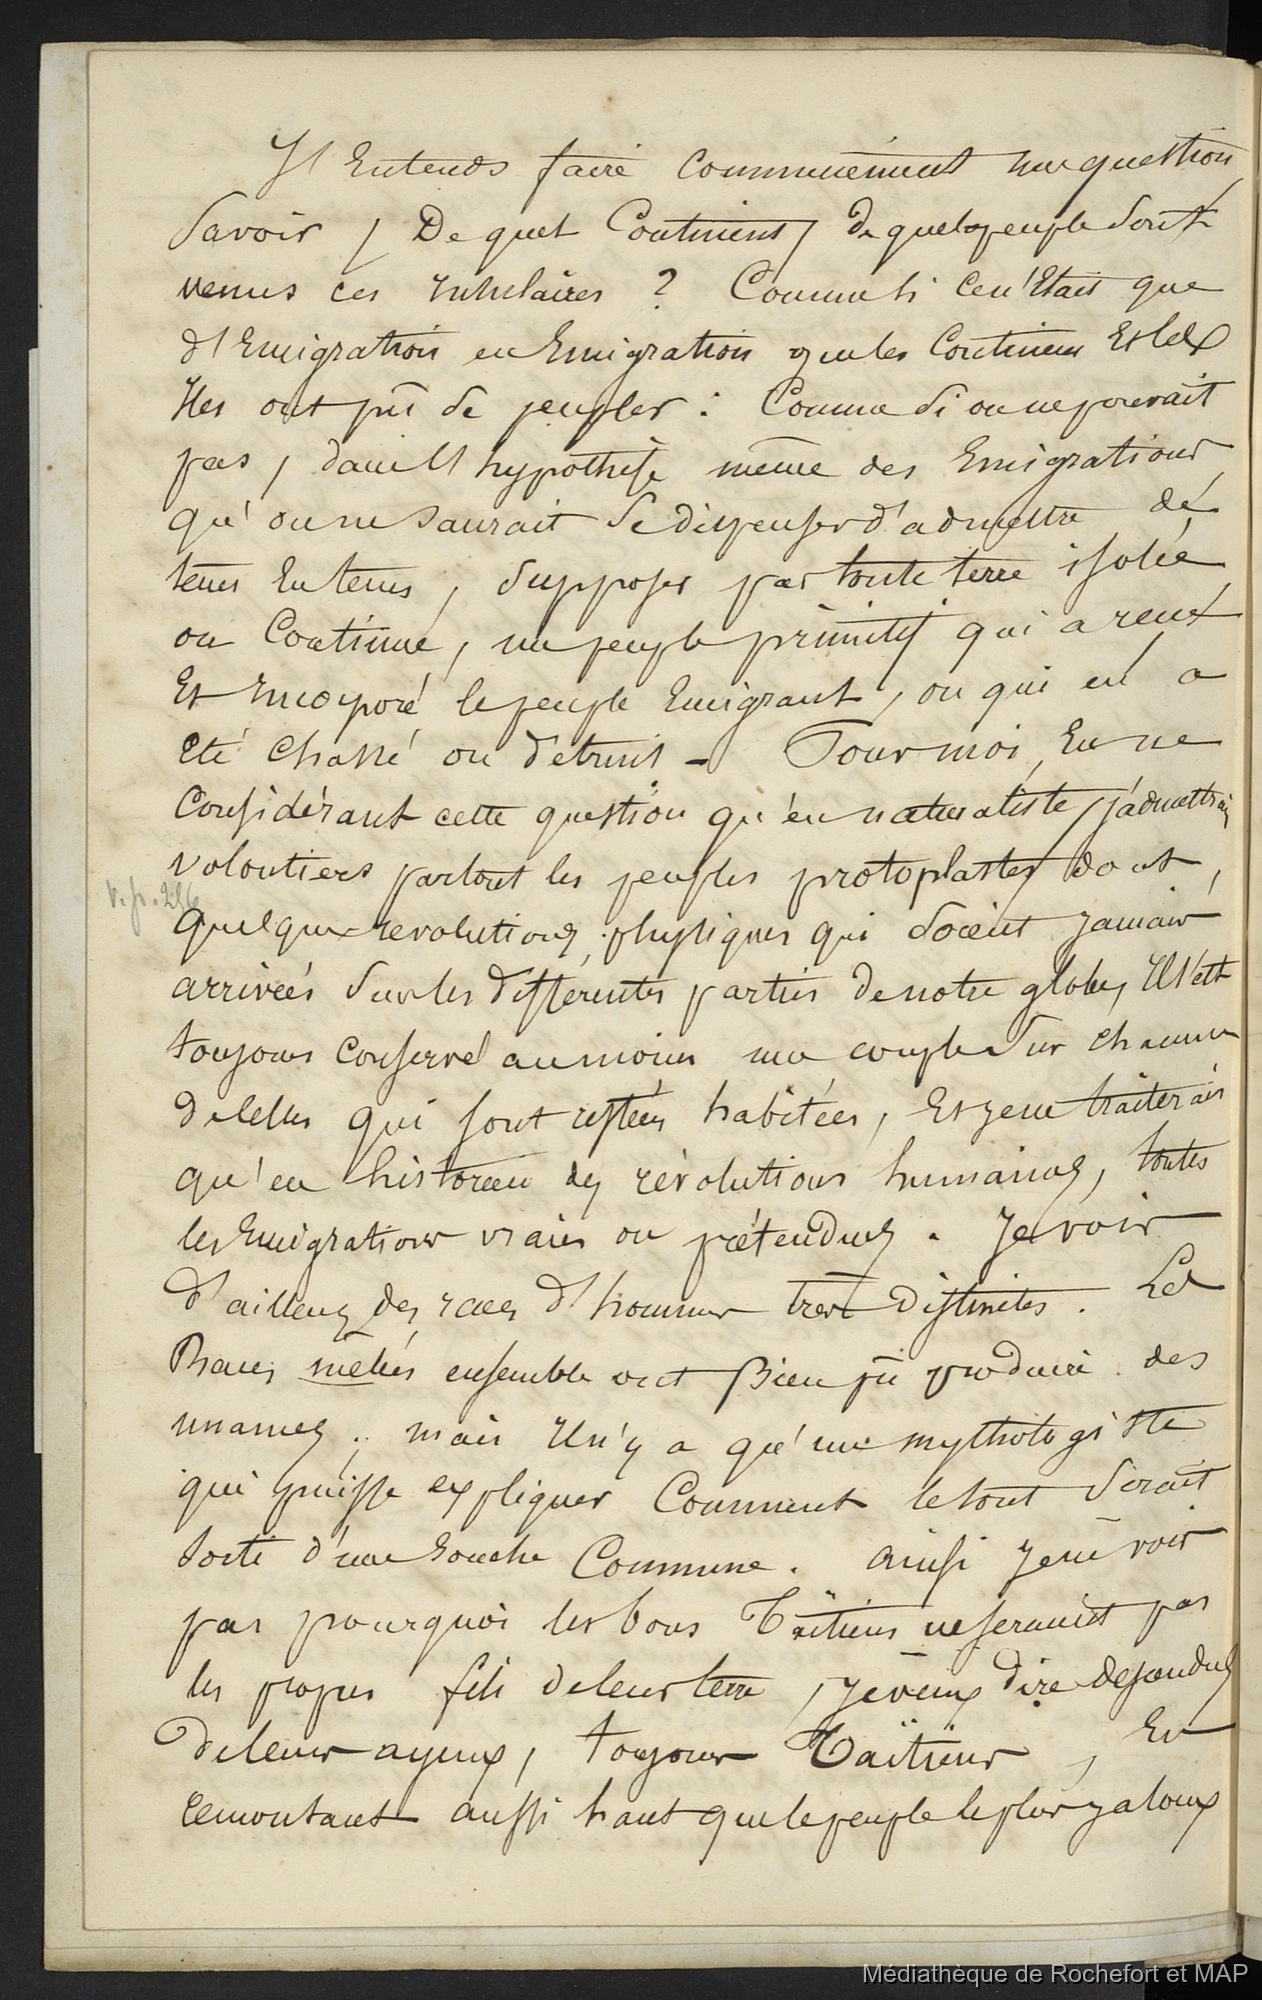 J'Entends faire communément une question
Savoir / De quel Continent / de quels peuples sont
venus ces insulaires ? Comme si ce n'Etait que
d'Emigration en Emigration que les Continens Et les
Iles ont pû se peupler : Comme si on ne pouvait
pas, dans l'hypothese même des Emigrations
qu'on ne saurait se dispenser d'admettre de
tems En tems, supposer par toute terre isolée
ou Continue, un peuple primitif qui a reçu
Et Incorporé le peuple Emigrant, ou qui en a
Eté Chassé ou détruit - Pour moi, En ne
Considérant cette question qu'en naturaliste, j'admettrai
volontiers partout les peuples protoplastes dont,
V. p. 286
quelques revolutions physiques qui soient jamais
arrivées sur les différentes parties de notre globe, Il s'est
toujours conservé au moins un couple sur chacune
de celles qui sont restées habitées, Et je ne traiterais
qu'en historien des révolutions humaines, toutes
les Emigrations vraies ou prétendues. Je vois
d'ailleurs des races d'hommes très distinctes. Ces
Races mêlées ensemble ont Bien pû produire des
nuances ; mais Il n'y a qu'un mythologiste
qui puisse expliquer Comment le tout serait
sorti d'une souche Commune. ainsi je ne vois
pas pourquoi les bons Taïtiens ne seraient pas
les propres fils de leur terre, je veux dire descendus
de leurs ayeux, toujours Taïtiens, En
remontant aussi haut que le peuple le plus jaloux
Médiathèque de Rochefort et MAP